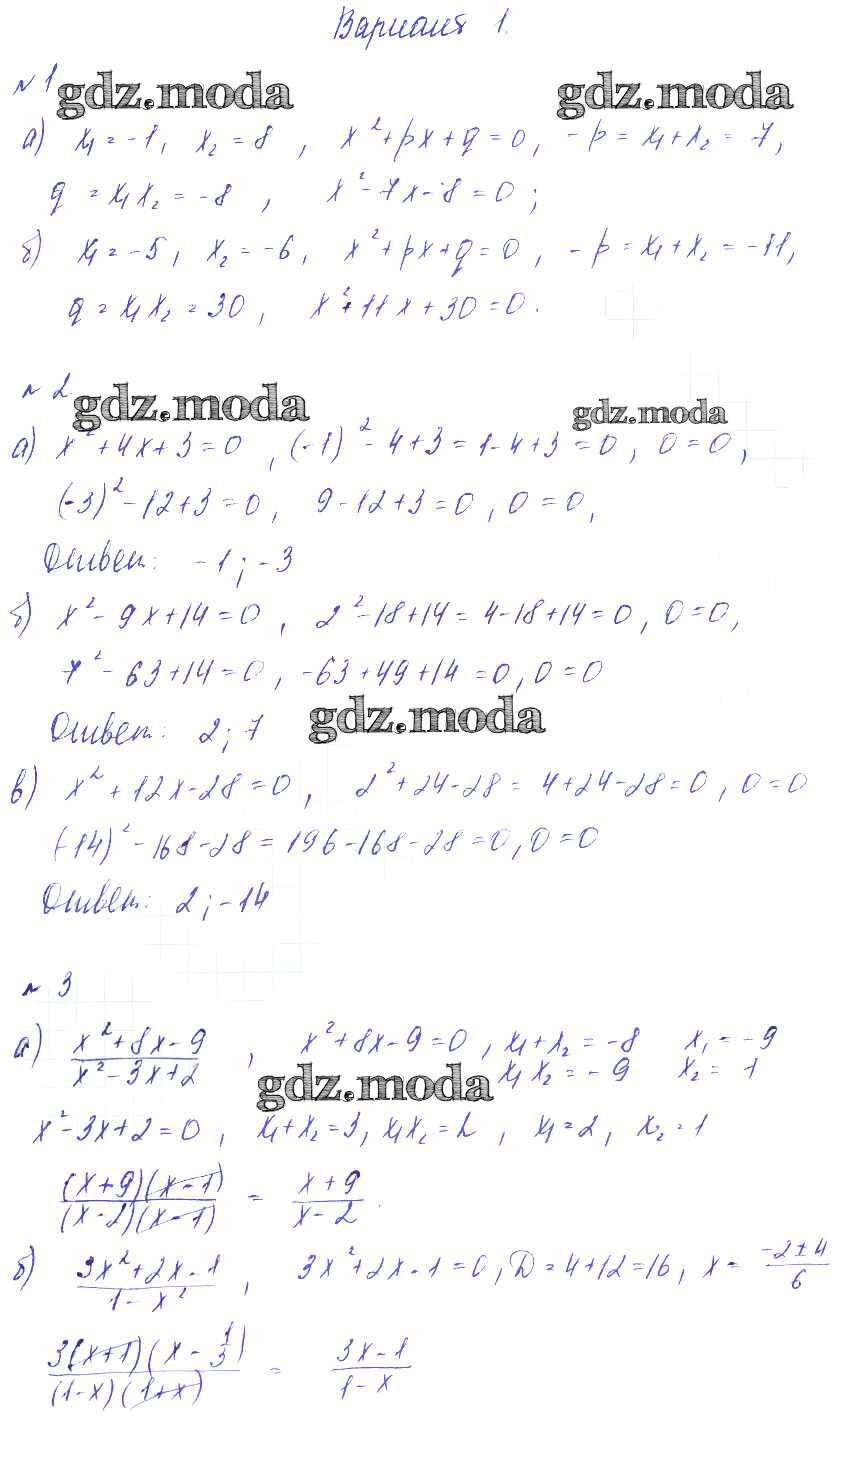 Вариант 1.
№1
gdz.moda gdz.moda
а) x₁ = -1, x₂ = 8, x² + px + q = 0, -p = x₁ + x₂ = 7,
q = x₁x₂ = -8, x² - 7x - 8 = 0;
б) x₁ = -5, x₂ = -6, x² + px + q = 0, -p = x₁ + x₂ = -11,
q = x₁x₂ = 30, x² + 11x + 30 = 0.
№2
gdz.moda gdz.moda
а) x² + 4x + 3 = 0, (-1)² - 4 + 3 = 1 - 4 + 3 = 0, 0 = 0,
(-3)² - 12 + 3 = 0, 9 - 12 + 3 = 0, 0 = 0,
Ответ: -1; -3
б) x² - 9x + 14 = 0, 2² - 18 + 14 = 4 - 18 + 14 = 0, 0 = 0,
7² - 63 + 14 = 0, -63 + 49 + 14 = 0, 0 = 0
Ответ: 2; 7
gdz.moda
в) x² + 12x - 28 = 0, 2² + 24 - 28 = 4 + 24 - 28 = 0, 0 = 0
(-14)² - 168 - 28 = 196 - 168 - 28 = 0, 0 = 0
Ответ: 2; -14
№3
а) (x² + 8x - 9)/(x² - 3x + 2), x² + 8x - 9 = 0, x₁ + x₂ = -8 x₁ = -9
gdz.moda x₁x₂ = -9 x₂ = 1
x² - 3x + 2 = 0, x₁ + x₂ = 3, x₁x₂ = 2, x₁ = 2, x₂ = 1
(x + 9)(x - 1)/(x - 2)(x - 1) = (x + 9)/(x - 2).
б) (3x² + 2x - 1)/(1 - x²), 3x² + 2x - 1 = 0, D = 4 + 12 = 16, x = (-2 ± 4)/6
3(x + 1)(x - 1/3)/(1 - x)(1 + x) = (3x - 1)/(1 - x)